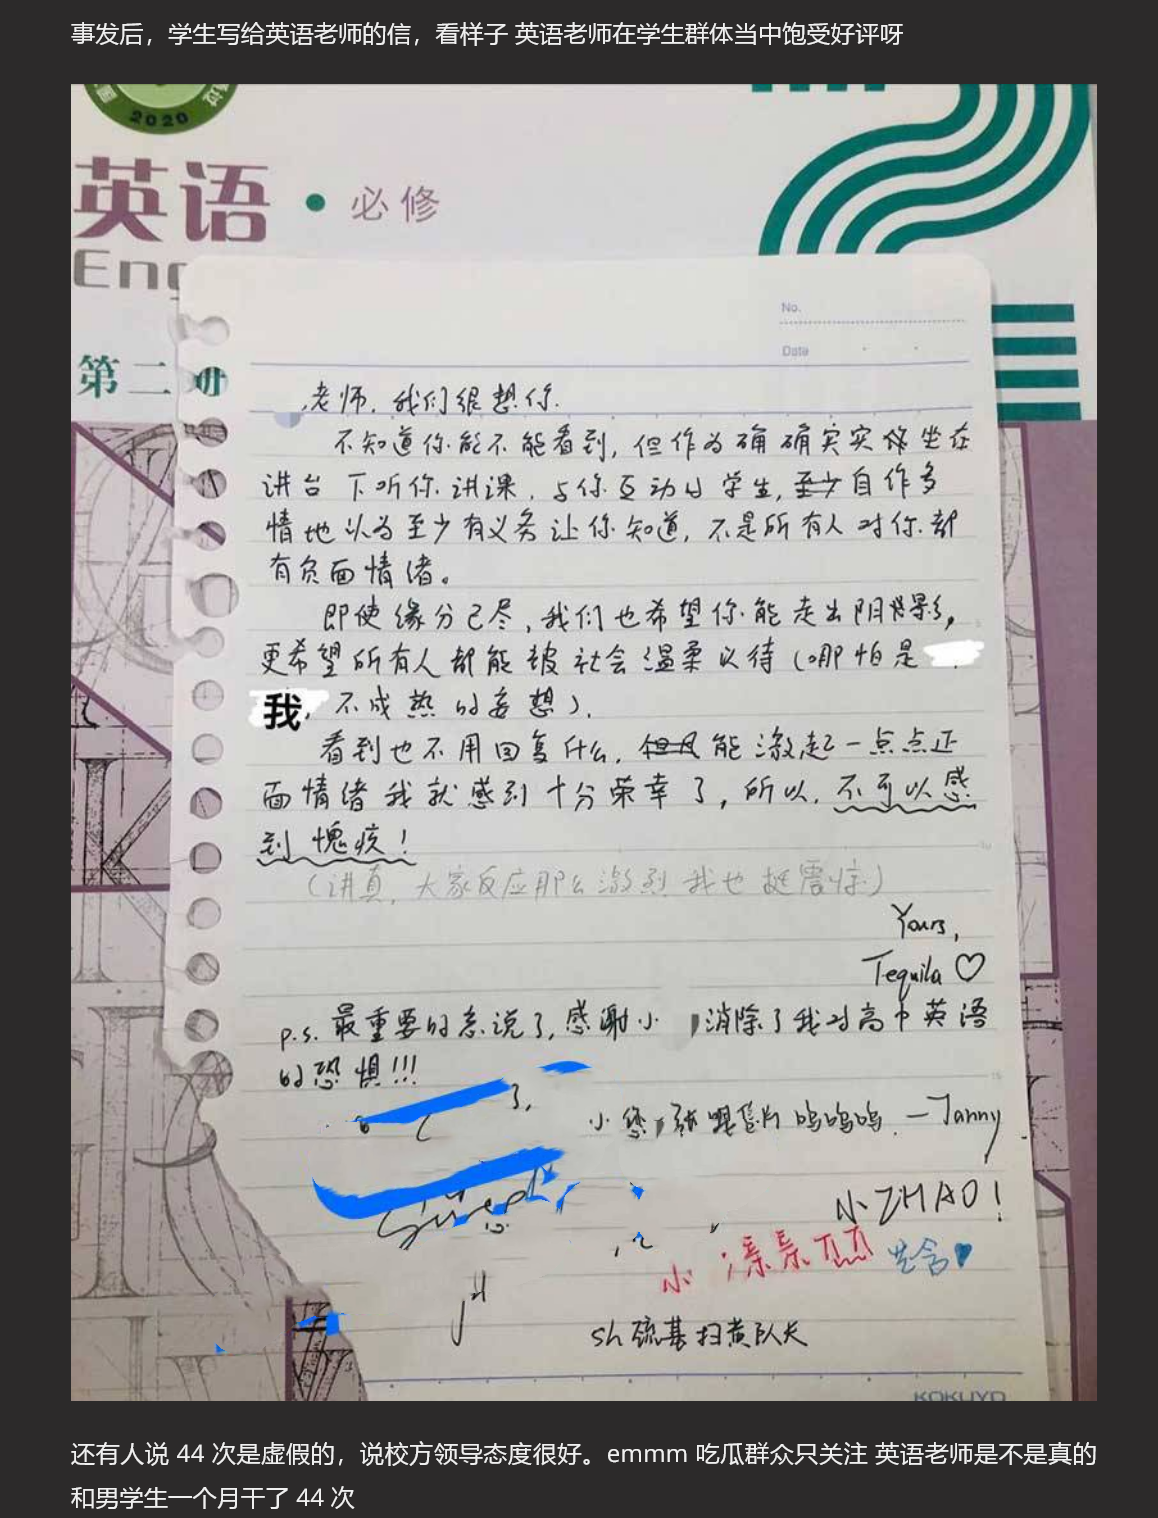 事发后，学生写给英语老师的信，看样子 英语老师在学生群体当中饱受好评呀
2020
英语·必修
Eng
第二册
No.
Date
老师，我们很想你.
不知道你能不能看到，但作为确确实实坐在
讲台下听你讲课，与你互动的学生，至少自作多
情地以为至少有义务让你知道，不是所有人对你都
有负面情绪。
即使缘分已尽，我们也希望你能走出阴影，
更希望所有人都能被社会温柔以待（哪怕是
我，不成熟的妄想）.
看到也不用回复什么，能激起一点点正
面情绪我就感到十分荣幸了，所以，不可以感
到愧疚！
（讲真，大家反应那么激烈我也挺震惊）
Yours,
Tequila ♡
p.s. 最重要的忘说了，感谢小 消除了我对高中英语
的恐惧!!!
呜呜呜 —Janny
小ZHAO！
小
sh 巯基扫黄队长
KOKUYO
还有人说 44 次是虚假的，说校方领导态度很好。emmm 吃瓜群众只关注 英语老师是不是真的
和男学生一个月干了 44 次